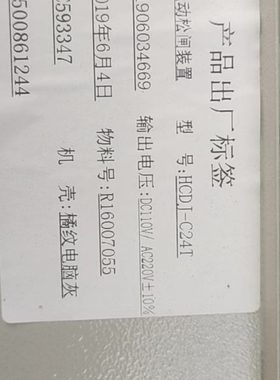 产品出厂标签
动松闸装置 型 号:HCDJ-C24T
906034669 输出电压:DC110V/AC220V±10%
019年6月4日 物料号:R16007055
593347 机 壳:橘纹电脑灰
500861244